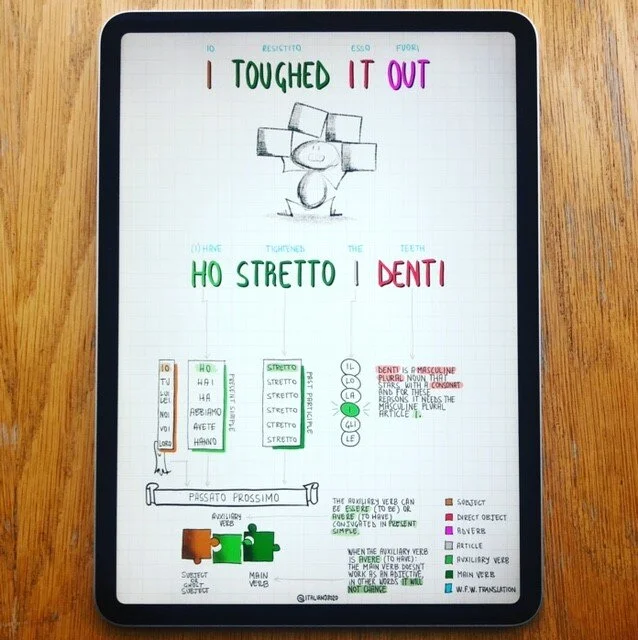 IO RESISTITO ESSO FUORI
I TOUGHED IT OUT
(I) HAVE TIGHTENED THE TEETH
HO STRETTO I DENTI
IO
TU
LUI
LEI
NOI
VOI
LORO
HO
HAI
HA
ABBIAMO
AVETE
HANNO
PRESENT SIMPLE
STRETTO
STRETTO
STRETTO
STRETTO
STRETTO
STRETTO
PAST PARTICIPLE
IL
LO
LA
I
GLI
LE
DENTI IS A MASCULINE
PLURAL NOUN THAT
STARS WITH A CONSONAT
AND FOR THESE
REASONS IT NEEDS THE
MASCULINE PLURAL
ARTICLE I.
PASSATO PROSSIMO
AUXILIARY
VERB
SUBJECT
OR
GHOST
SUBJECT
MAIN
VERB
THE AUXILIARY VERB CAN
BE ESSERE (TO BE) OR
AVERE (TO HAVE)
CONJUGATED IN PRESENT
SIMPLE.
WHEN THE AUXILIARY VERB
IS AVERE (TO HAVE):
THE MAIN VERB DOESN'T
WORK AS AN ADJECTIVE,
IN OTHER WORDS IT WILL
NOT CHANGE
SUBJECT
DIRECT OBJECT
ADVERB
ARTICLE
AUXILIARY VERB
MAIN VERB
W.F.W. TRANSLATION